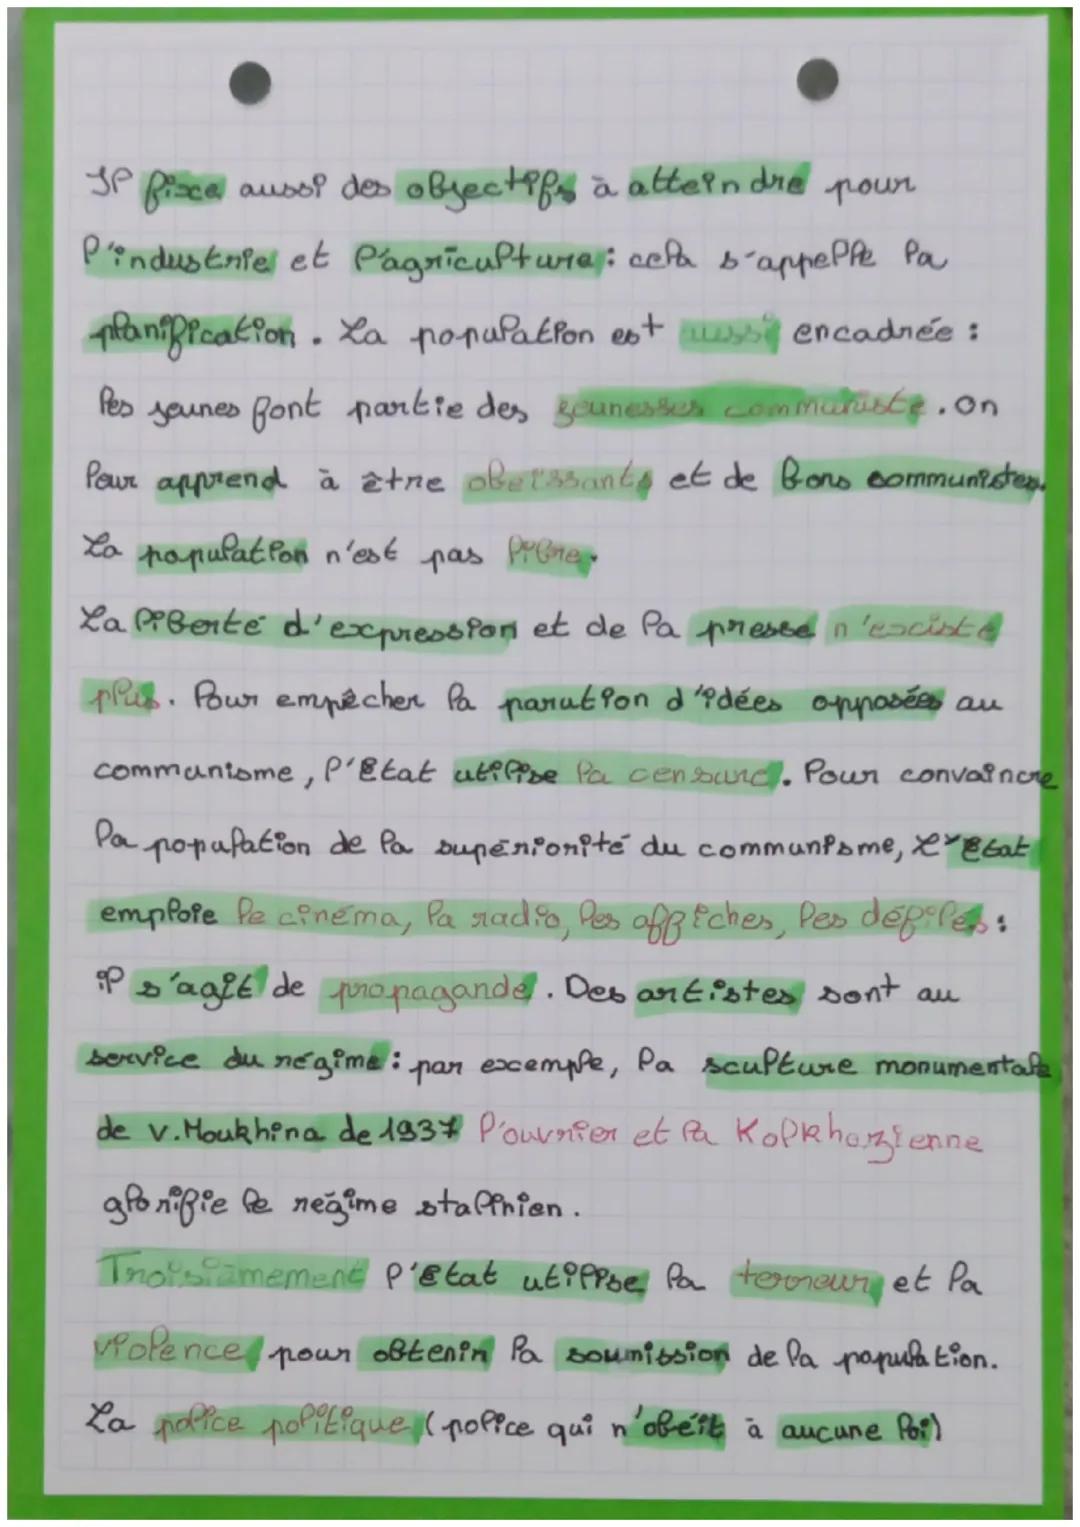 Il fixe aussi des objectifs à atteindre pour
l'industrie et l'agriculture : cela s'appelle la
planification. La population est aussi encadrée :
les jeunes font partie des jeunesses communiste. on
leur apprend à être obeissants et de bons communistes.
La population n'est pas libre.
La liberté d'expression et de la presse n'existe
plus. Pour empêcher la parution d'idées opposées au
communisme, l'Etat utilise la censure. Pour convaincre
la population de la supériorité du communisme, L'Etat
emploie le cinéma, la radio, les affiches, les défilés :
il s'agit de propagande. Des artistes sont au
service du régime : par exemple, la sculpture monumentale
de V. Moukhina de 1937 l'ouvrier et la Kolkhozienne
glorifie le régime stalinien.
Troisièmement l'Etat utilise la terreur et la
violence pour obtenir la soumission de la population.
La police politique (police qui n'obéit à aucune loi)